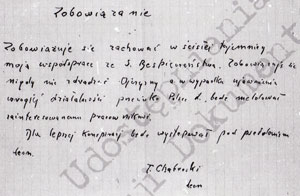 Zobowiązanie
Zobowiązuje się zachować w ścisłej tajemnicy
moją współpracę ze S. Bezpieczeństwa. Zobowiązuje się
nigdy nie zdradzić Ojczyzny a o wypadku ujawnienia
wrogiej działalności przeciwko Polsce L. będę meldować
zainteresowanemu pracownikowi.
Dla lepszej konspiracji będę występować pod pseudonimem
T. Chabrowski
Udostępniania
Dokument